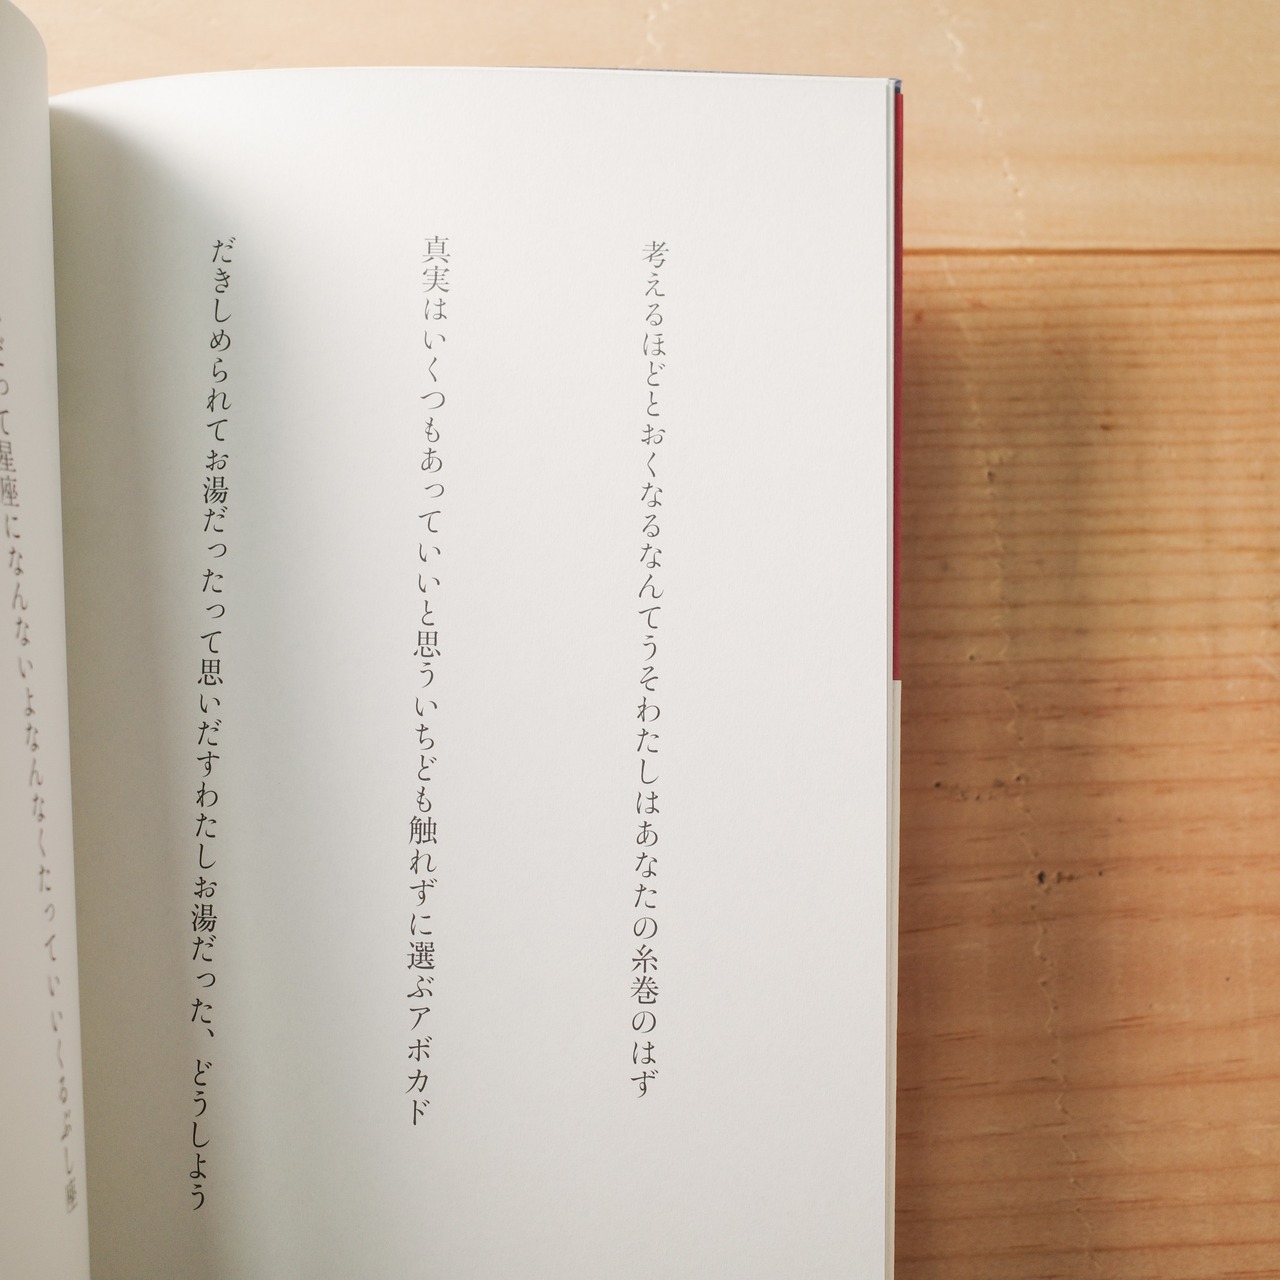 考えるほどとおくなるなんてうそわたしはあなたの糸巻のはず
真実はいくつもあっていいと思ういちども触れずに選ぶアボカド
だきしめられてお湯だったって思いだすわたしお湯だった、どうしよう
だって星座になんないよなんなくたっていいくるぶし座